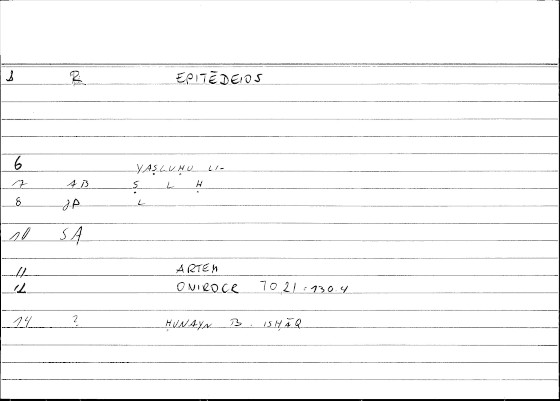 1 R EPITĒDEIOS
6 YAṢLUḤU LI-
7 AB Ṣ L Ḥ
8 JP L
10 SA
11 ARTEM
12 ONIROCR 70,21 : 130,4
14 ? ḤUNAYN B. ISḤĀQ